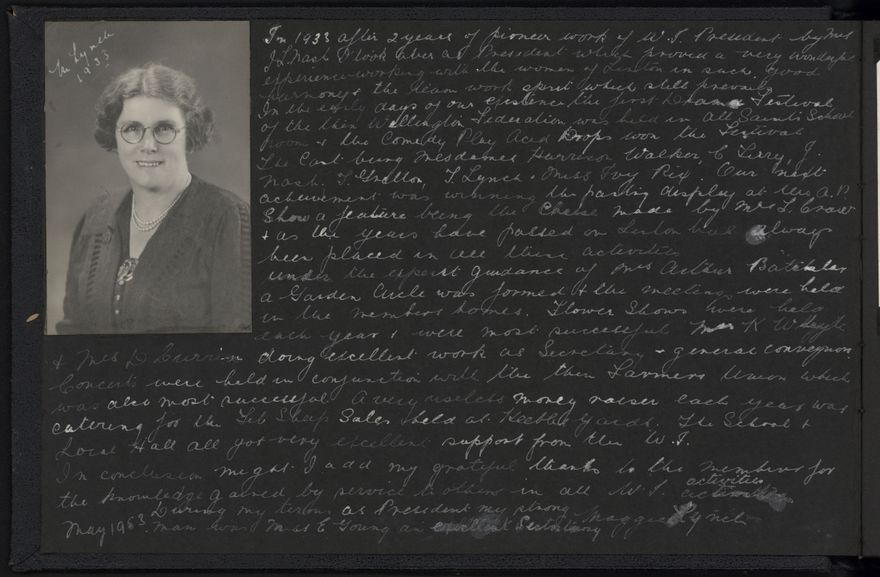 Mrs Lynch
1933
In 1933 after 2 years of pioneer work of W.I. President by Mrs
J.L. Nash I took over as President which proved a very wonderful
experience working with the women of Linton in such good
harmony & the team work spirit which still prevails
In the early days of our existence the first Drama Festival
of the then Wellington Federation was held in All Saints School
room & the Comedy Play Acid Drops won the Festival
The Cast being Mesdames Harrison Walker, C. Terry, J.
Nash, T. Lynch & Miss Ivy Rix. Our next
achievement was winning the display at the A.P.
Show a feature being the Cheese made by Mrs L.
& as the years have passed on Linton had always
been placed in all these activities
Under the expert guidance of Mrs Arthur Batchelar
a Garden Circle was formed & the meetings were held
in the members homes. Flower Shows were held
each year & were most successful Mrs K
& Mrs D doing excellent work as Secretary & general
Concerts were held in conjunction with the then Farmers Union which
was also most successful A very money raiser each year was
catering for the Feb Sheep Sales held at Yards. The School &
Local Hall all got very excellent support from the W.I.
In conclusion might I add my grateful thanks to the members for
the knowledge gained by service to others in all W.I. activities
During my term as President my strong
May 1963 man was Mrs E Young an excellent Secretary Maggie Lynch